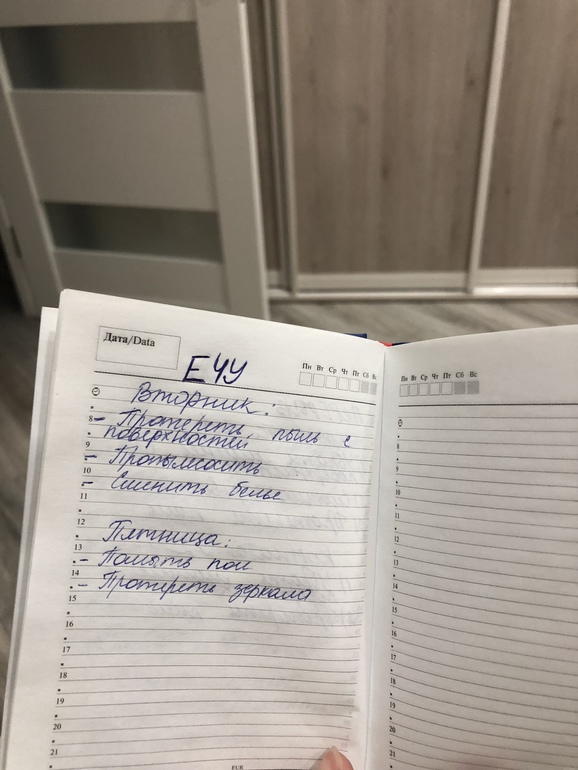 Дата/Data
ЕЧУ
Пн Вт Ср Чт Пт Сб Вс
Вторник:
8 - Протереть пыль с
поверхностей
9
- Пропылесосить
10
- Сменить белье
11
12
Пятница:
13
- Помыть пол
14
- Протереть зеркала
15
16
17
18
19
20
21
EUR
Пн Вт Ср Чт Пт Сб Вс
8
9
10
11
12
13
14
15
16
17
18
19
20
21